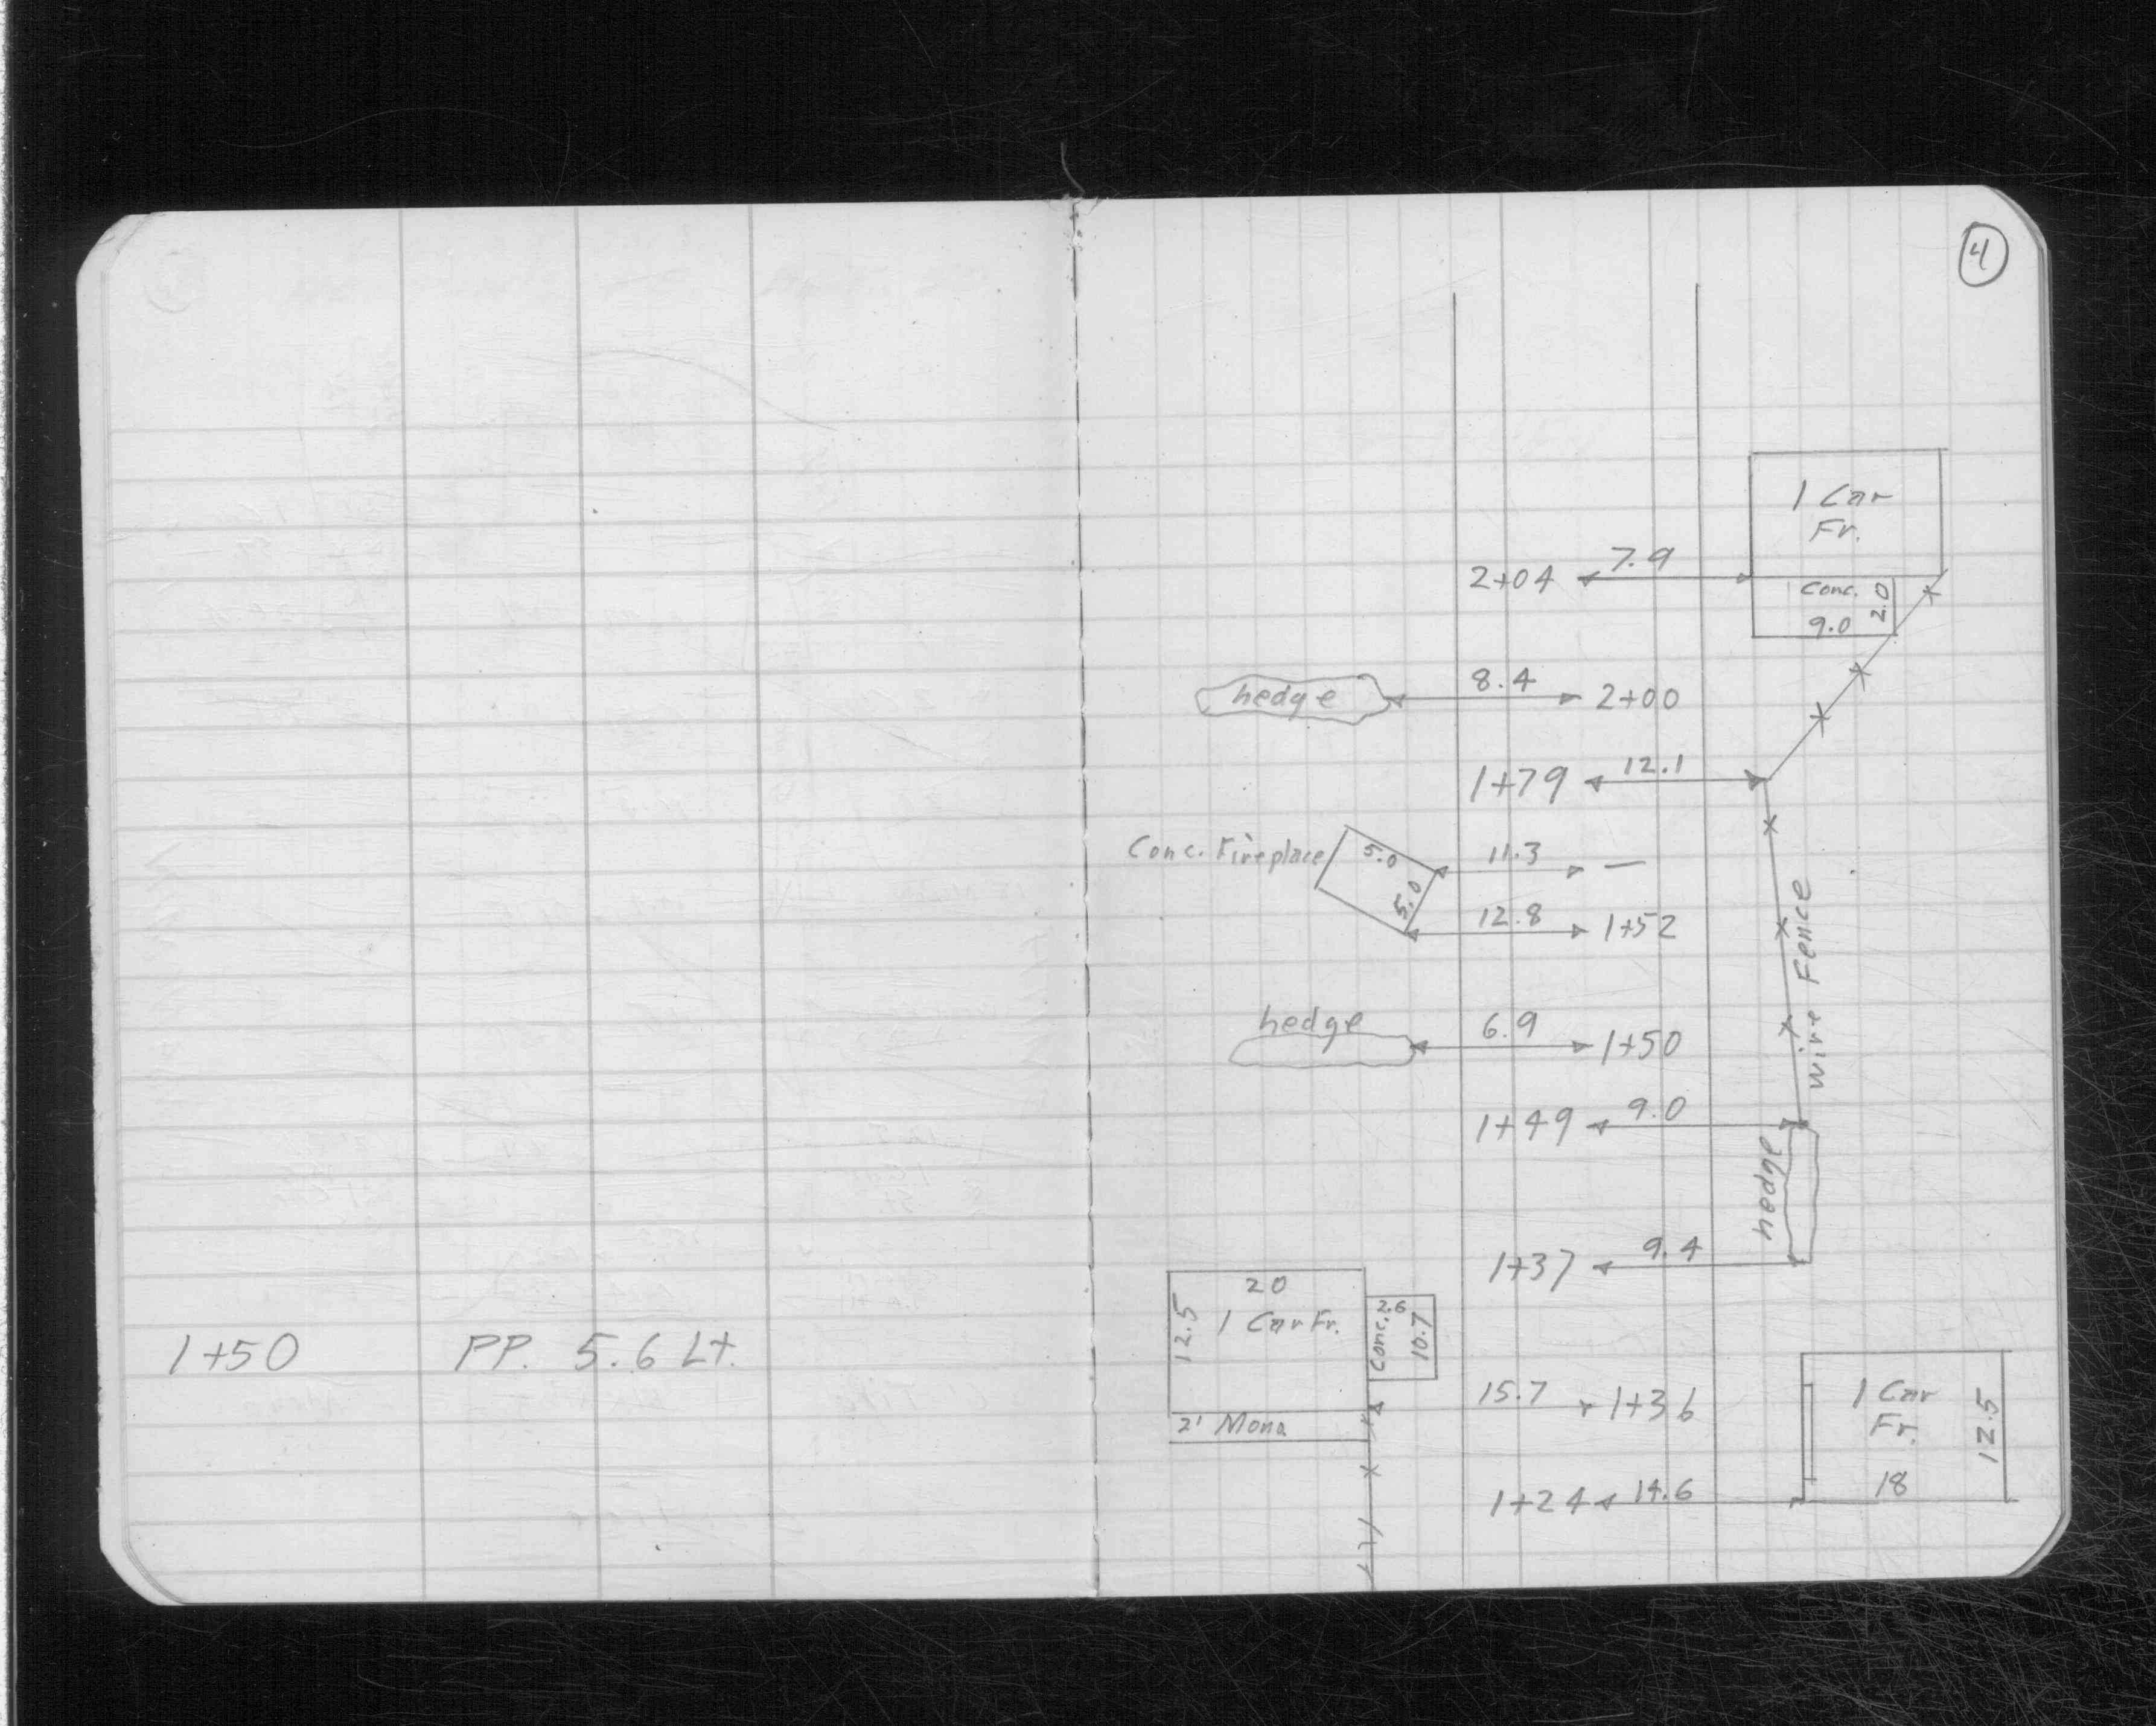 1+50 PP. 5.6 Lt.
4
1 Car
Fr.
2+04 7.9
Conc.
9.0 2.0
hedge 8.4 2+00
1+79 12.1
Conc. Fireplace 5.0 11.3 —
5.0 12.8 1+52
wire Fence
hedge 6.9 1+50
1+49 9.0
hedge
1+37 9.4
20
12.5 1 Car Fr. Conc. 2.6 10.7
15.7 1+36
2' Mono
1 Car
Fr. 12.5
18
1+24 14.6